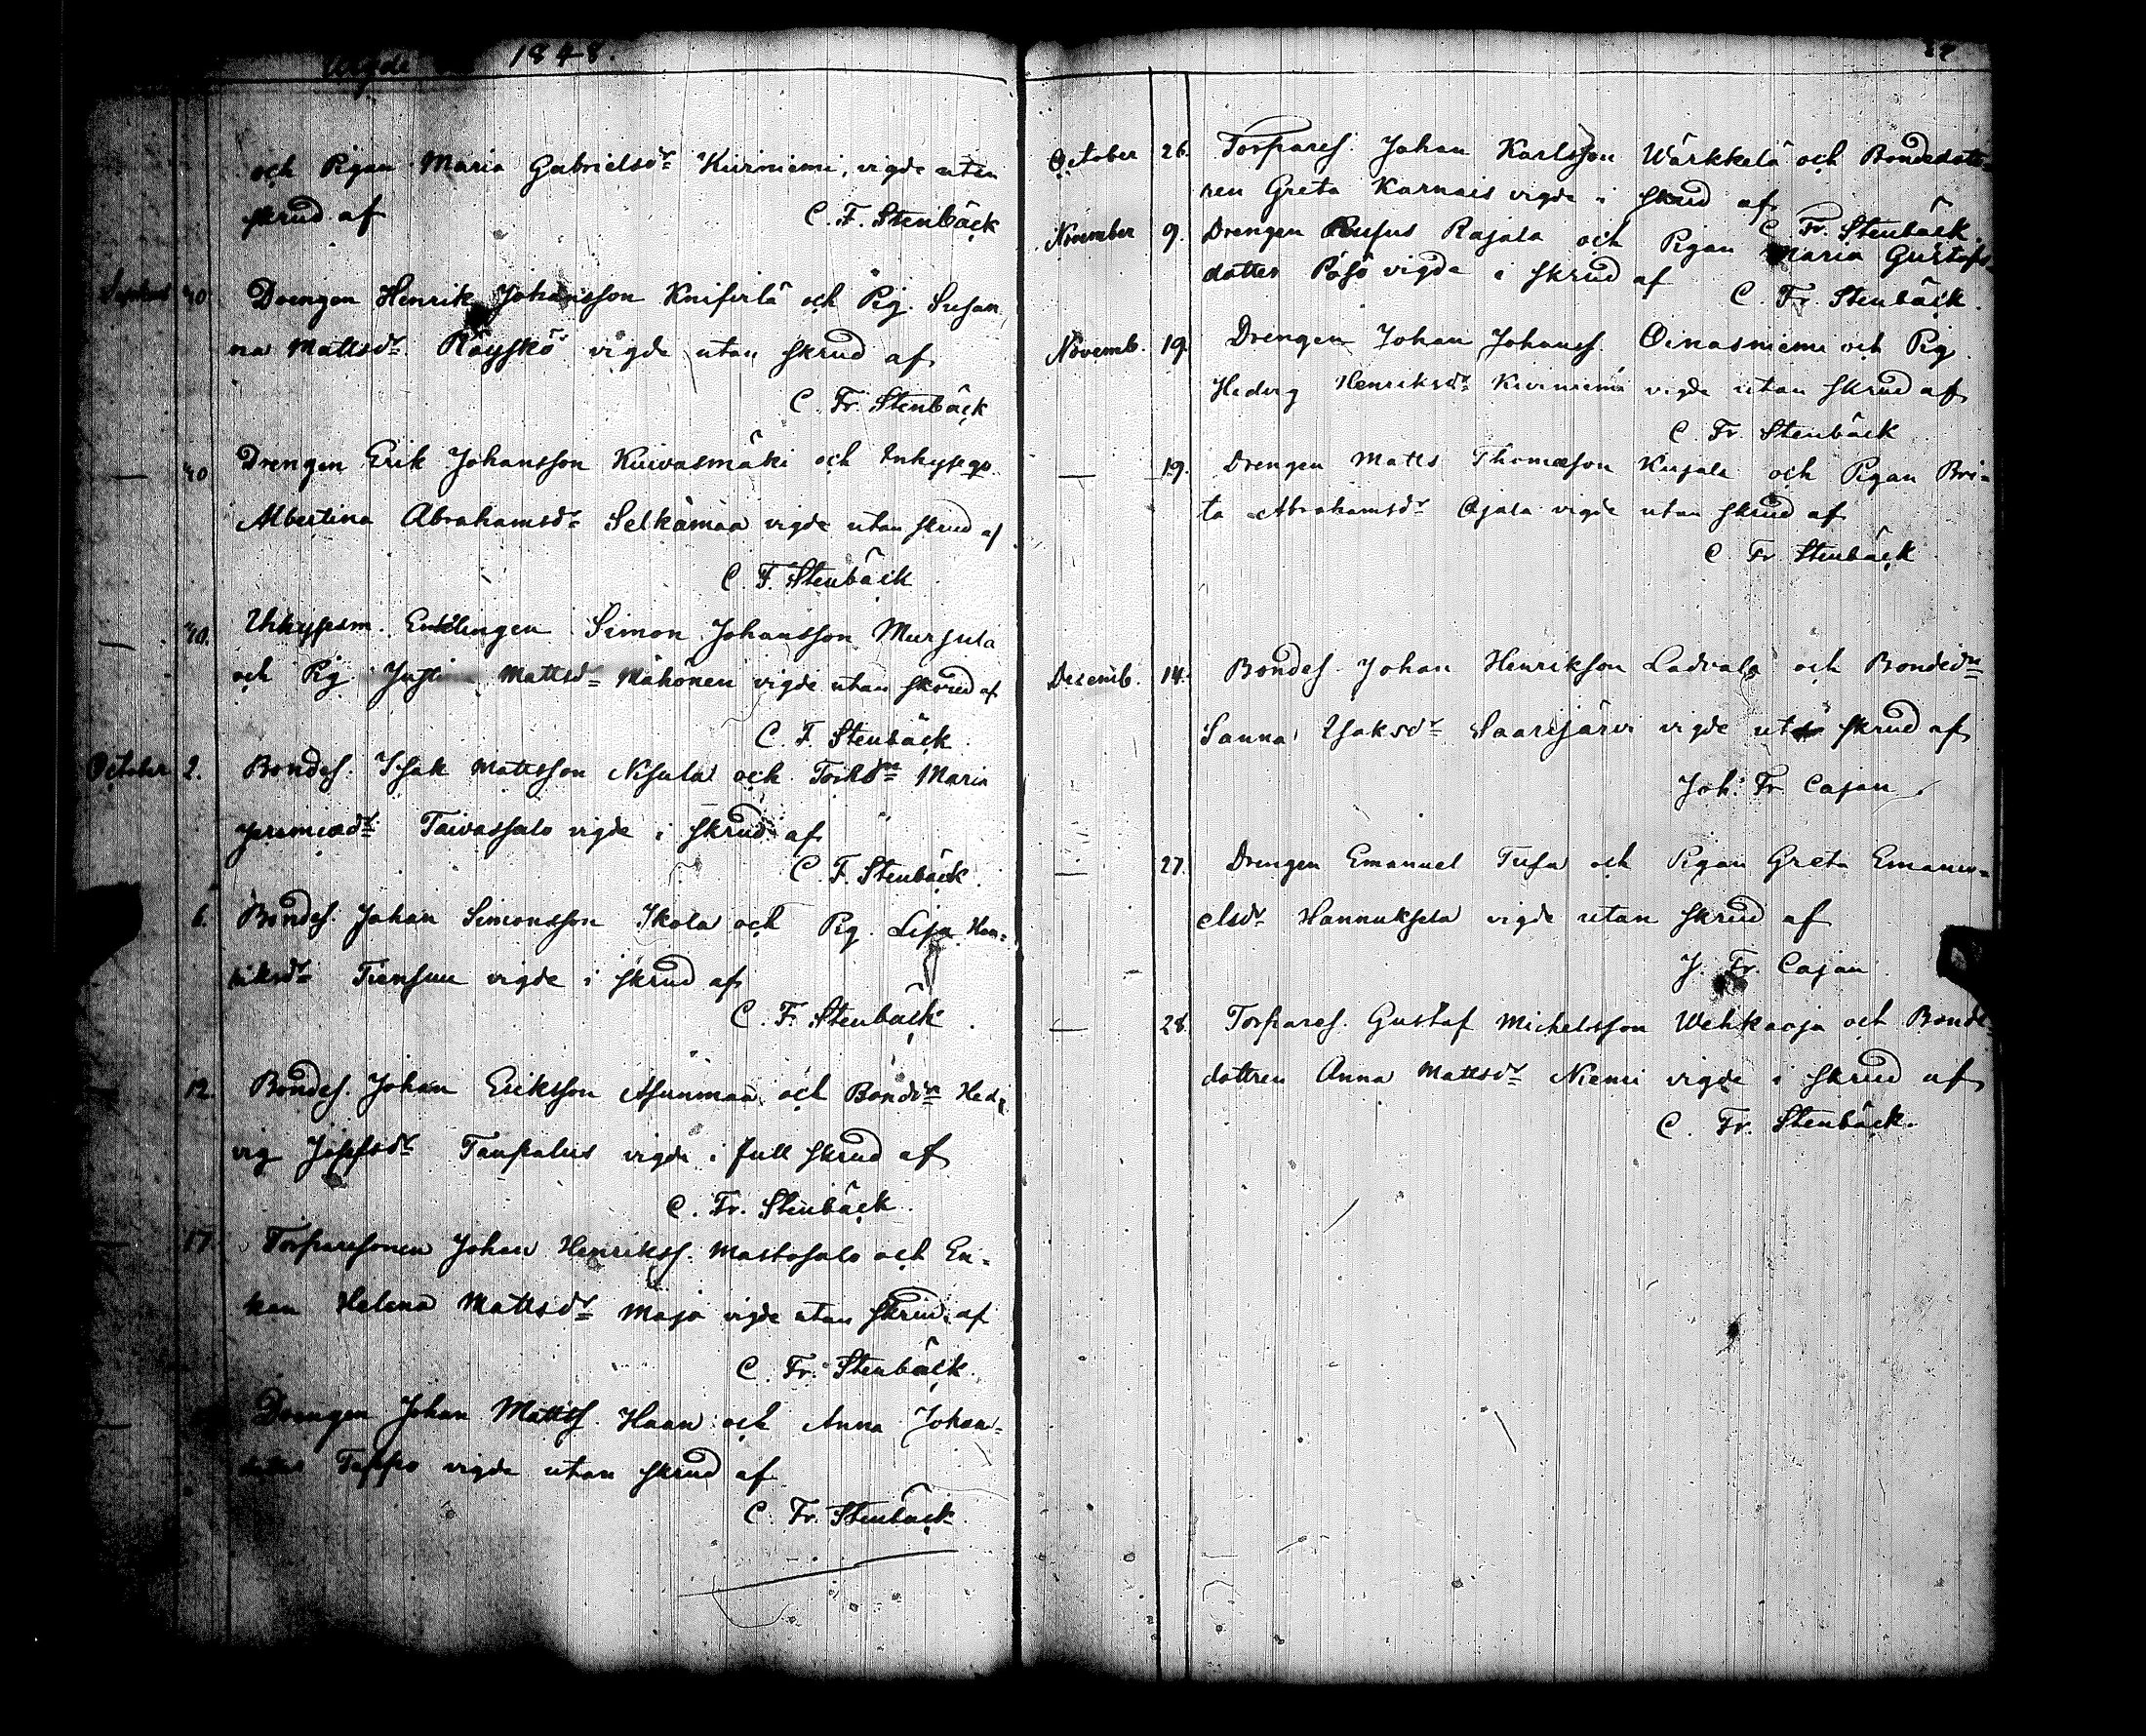 Vigde 1848.
och Pigan Maria Gabrielsdr Kiviniemi, vigde utan
skrud af C. F. Stenbäck
Drengen Henrik Johansson Kniferlä och Pig. Susan
na Mattsdr Räyskö vigde utan skrud af
C. Fr. Stenbäck
— Drengen Erik Johansson Kuivasmäki och Inhysesp.
Albertina Abrahamsdr Selkämaa vigde utan skrud af
C. F. Stenbäck
— Inhysesm. Enklingen Simon Johansson Murjula
och Pig. Justina Mattsdr Mähönen vigde utan skrud af
C. F. Stenbäck
October 2. Bondes. Isak Mattsson Nisula och Maria
Jeremiædr Taivassalo vigde i skrud af
C. F. Stenbäck
6. Bondes. Johan Simonsson Ikola och Pig. Lisa Hen-
riksdr Tiensuu vigde i skrud af
C. F. Stenbäck
12. Bondes. Johan Eriksson Asunmaa och Bonddrn Hed-
vig Josefsdr Taupalus vigde i full skrud af
C. Fr. Stenbäck
17. Torparesonen Johan Henrikss. Mastosalo och En-
kan Helena Mattsdr Maja vigde utan skrud af
C. Fr. Stenbäck
— Drengen Johan Mattss. Haan och Anna Johans-
dotter Teppo vigde utan skrud af
C. Fr. Stenbäck
October 26. Torpares. Johan Karlsson Wärkkelä och Bondedott-
ren Greta Karnais vigde i skrud af
C. Fr. Stenbäck
November 9. Drengen Rufus Rajala och Pigan Maria Gustafs
dotter Pösö vigde i skrud af
C. Fr. Stenbäck
Novemb. 19. Drengen Johan Johanss. Oinasniemi och Pig.
Hedvig Henriksdr Kiviniemi vigde utan skrud af
C. Fr. Stenbäck
— 19. Drengen Matts Thomæson Kujala och Pigan Bri-
ta Abrahamsdr Ojala vigde utan skrud af
C. Fr. Stenbäck
Decemb. 14. Bondes. Johan Henrikson Ladvala och Bondedrn
Sanna Isaksdr Saarijärvi vigde skrud af
Joh. Fr. Cajan
— 27. Drengen Emanuel Tusa och Pigan Greta Emanu-
elsdr Hannuksela vigde utan skrud af
J. Fr. Cajan
— 28. Torpares. Gustaf Michelsson Wehkaoja och Bonde-
dottren Anna Mattsdr Niemi vigde i skrud af
C. Fr. Stenbäck.